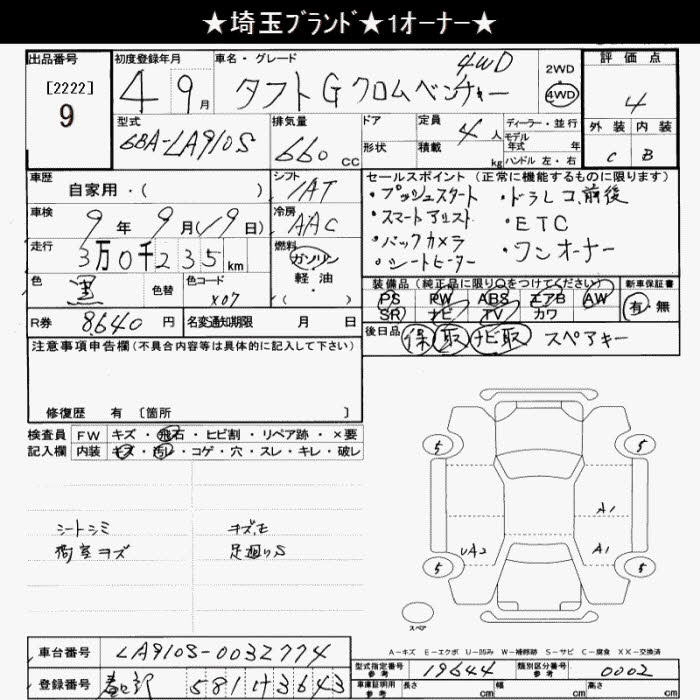 ★埼玉ﾌﾞﾗﾝﾄﾞ★1オーナー★
出品番号
[2222]
9
初度登録年月
4 9月
車名・グレード
タフト G クロムベンチャー 4WD
2WD
4WD
評価点
4
外装 内装
C B
型式
6BA-LA910S
排気量
660 cc
ドア
形状
定員
4人
積載 kg
ディーラー・並行
モデル
年式 年
ハンドル 左・右
車歴
自家用・( )
シフト
IAT
車検
9年 9月(19日)
冷房
AAC
走行
3万0千235km
燃料
ガソリン
軽油
( )
色
黒
色替
色コード
X07
R券 8,640円
名変通知期限 月 日
セールスポイント (正常に機能するものに限ります)
・プッシュスタート ・ドラレコ前後
・スマートアシスト ・ETC
・バックカメラ ・ワンオーナー
・シートヒーター
装備品(純正品に限り○をつけてください)
PS PW ABS エアB AW
SR ナビ TV カワ
新車保証書
有・無
後日品 保 取 ナビ取 スペアキー
注意事項申告欄(不具合内容等は具体的に記入して下さい)
修復歴 有 〔箇所 〕
検査員
記入欄
FW キズ・飛石・ヒビ割・リペア跡・×要
内装 キズ・汚レ・コゲ・穴・スレ・キレ・破レ
シートシミ
荷室キズ
キズ,モ
足廻りS
5 5
A1
UA2 A1
5 5
スペア
A−キズ E−エクボ U−凹み W−補修跡 S−サビ C−腐食 XX−交換済
車台番号 LA910S-0032774
登録番号 春日部 581 サ 3643
型式指定番号
参考
19644
類別区分番号
参考
0002
車庫証明用
参考
長さ cm 幅 cm 高さ cm